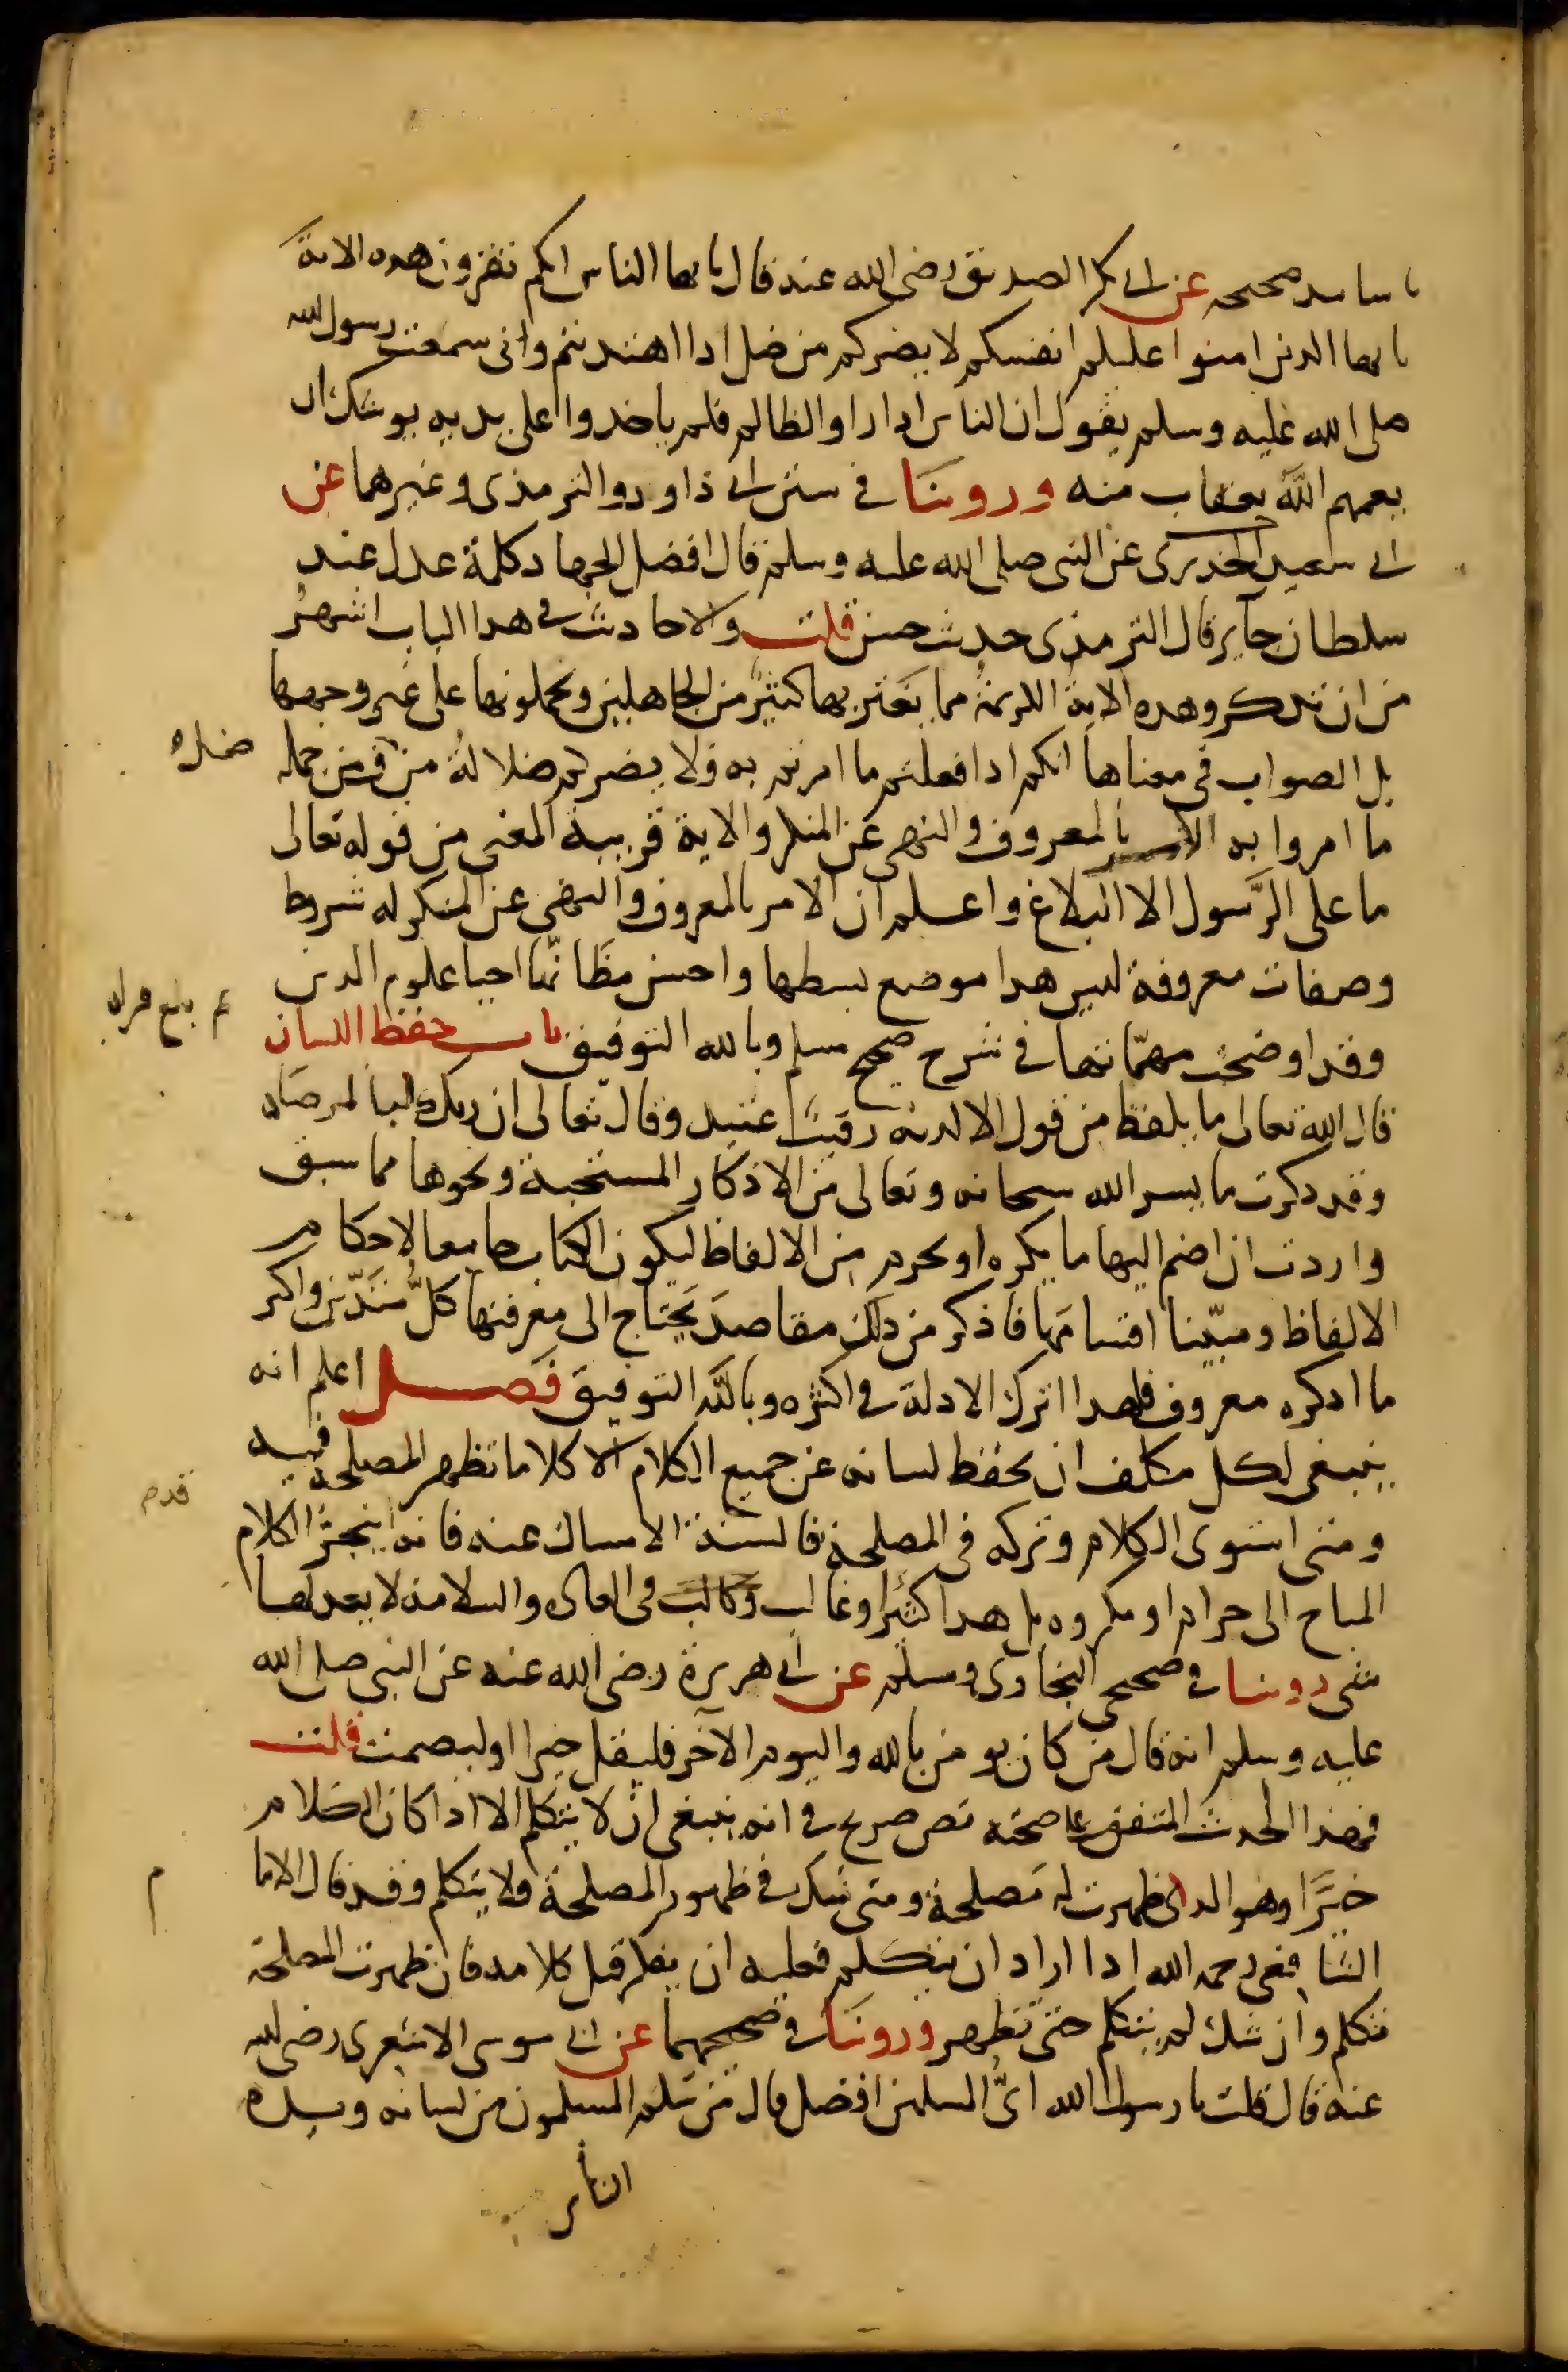 باسانيد صحيحه عن ابي بكر الصديق رضي الله عنه قال يا ايها الناس انكم تقرون هذه الاية
يا ايها الذين امنوا عليكم انفسكم لا يضركم من ضل اذا اهتديتم واني سمعت رسول الله
صلى الله عليه وسلم يقول ان الناس اذا راوا الظالم فلم ياخذوا على يديه يوشك ان
يعمهم الله بعقاب منه وروينا في سنن ابي داود والترمذي وغيرهما عن
ابي سعيد الخدري عن النبي صلى الله عليه وسلم قال افضل الجهاد كلمة عدل عند
سلطان جاير قال الترمذي حديث حسن قلت والاحاديث في هذا الباب اشهر
من ان تذكر وهذه الاية الكريمة مما يغتر بها كثير من الجاهلين ويحملونها على غير وجهها
بل الصواب في معناها انكم اذا فعلتم ما امرتم به فلا يضركم ضلالة من ومن جملة
ضل
ما امروا به الامر بالمعروف والنهي عن المنكر والاية قريبة المعنى من قوله تعالى
ما على الرسول الا البلاغ واعلم ان الامر بالمعروف والنهي عن المنكر له شروط
وصفات معروفة ليس هذا موضع بسطها واحسن مظانها احيا علوم الدين
وقد اوضحت مهماتها في شرح صحيح مسلم وبالله التوفيق باب حفظ اللسان
قال الله تعالى ما يلفظ من قول الا لديه رقيب عتيد وقال تعالى ان ربك لبالمرصاد
وقد ذكرت ما يسر الله سبحانه وتعالى من الاذكار المستحبة ونحوها مما سبق
واردت ان اضم اليها ما يكره او يحرم من الالفاظ ليكون الكتاب جامعا لاحكام
الالفاظ ومبينا اقسامها فاذكر من ذلك مقاصد يحتاج الى معرفتها كل متدين واكثر
ما اذكره معروف فلهذا اترك الادلة في اكثره وبالله التوفيق فصل اعلم انه
ينبغي لكل مكلف ان يحفظ لسانه عن جميع الكلام الا كلاما تظهر المصلحة فيه
ومتى استوى الكلام وتركه في المصلحة فالسنة الامساك عنه فانه ينجر الكلام
المباح الى حرام او مكروه بل هذا كثير او غالب في العادة والسلامة لا يعدلها
شي روينا في صحيحي البخاري ومسلم عن ابي هريرة رضي الله عنه عن النبي صلى الله
عليه وسلم انه قال من كان يومن بالله واليوم الآخر فليقل خيرا او ليصمت قلت
فهذا الحديث المتفق على صحته نص صريح في انه ينبغي ان لا يتكلم الا اذا كان الكلام
خيرا وهو الذي ظهرت له مصلحة ومتى شك في ظهور المصلحة فلا يتكلم وقد قال الاما
م
الشافعي رحمه الله اذا اراد ان يتكلم فعليه ان يفكر قبل كلامه فان ظهرت المصلحة
تكلم وان شك لم يتكلم حتى تظهر وروينا في صحيحهما عن ابي موسى الاشعري رضي الله
عنه قال قلت يا رسول الله اي المسلمين افضل قال من سلم المسلمون من لسانه ويده
الناس